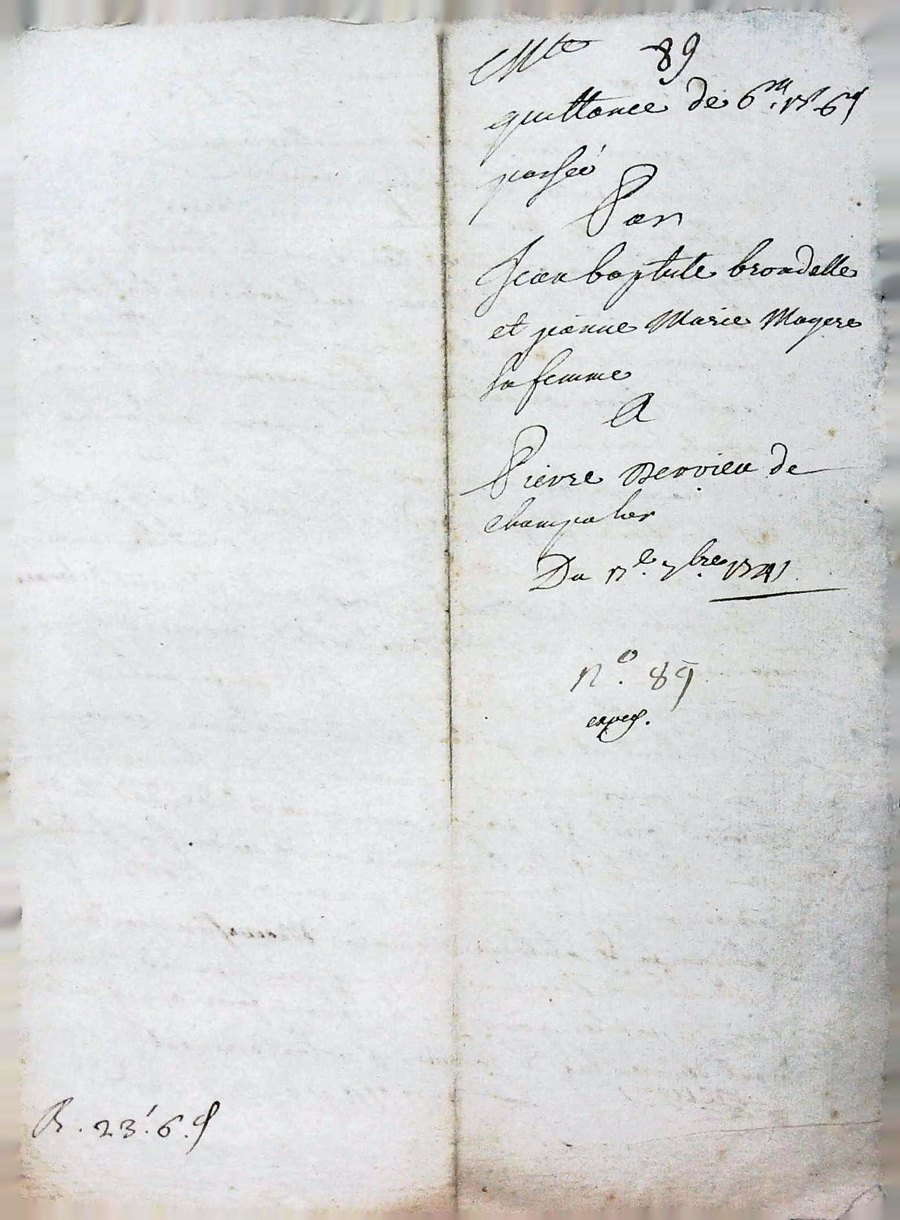 89
quittance de 6
passée
Par
Jean baptiste brondelle
et jeanne Marie Mayere
sa femme
A
Pierre Dervieu de
Du 17e 7bre 1741
n° 89
exped.
R. 23s. 6d